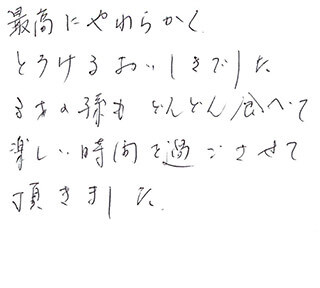 最高にやわらかく
とろけるおいしさでした
3才の孫もどんどん食べて
楽しい時間を過ごさせて
頂きました。